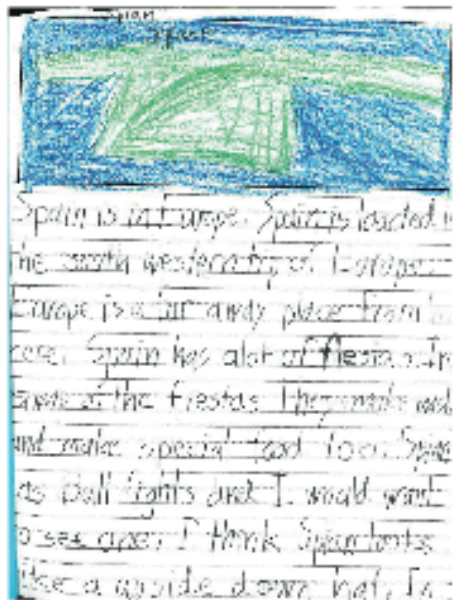 Spain
Spain is in Europe. Spain is loacted i
the south western tip of Europe.
Europe is a far away place from
Spain has alot of fiestas. In
of the fiestas they make
and make special food too. Spain
Bull fights and I would want
see one. I think Spain looks
like a upside down hat. In